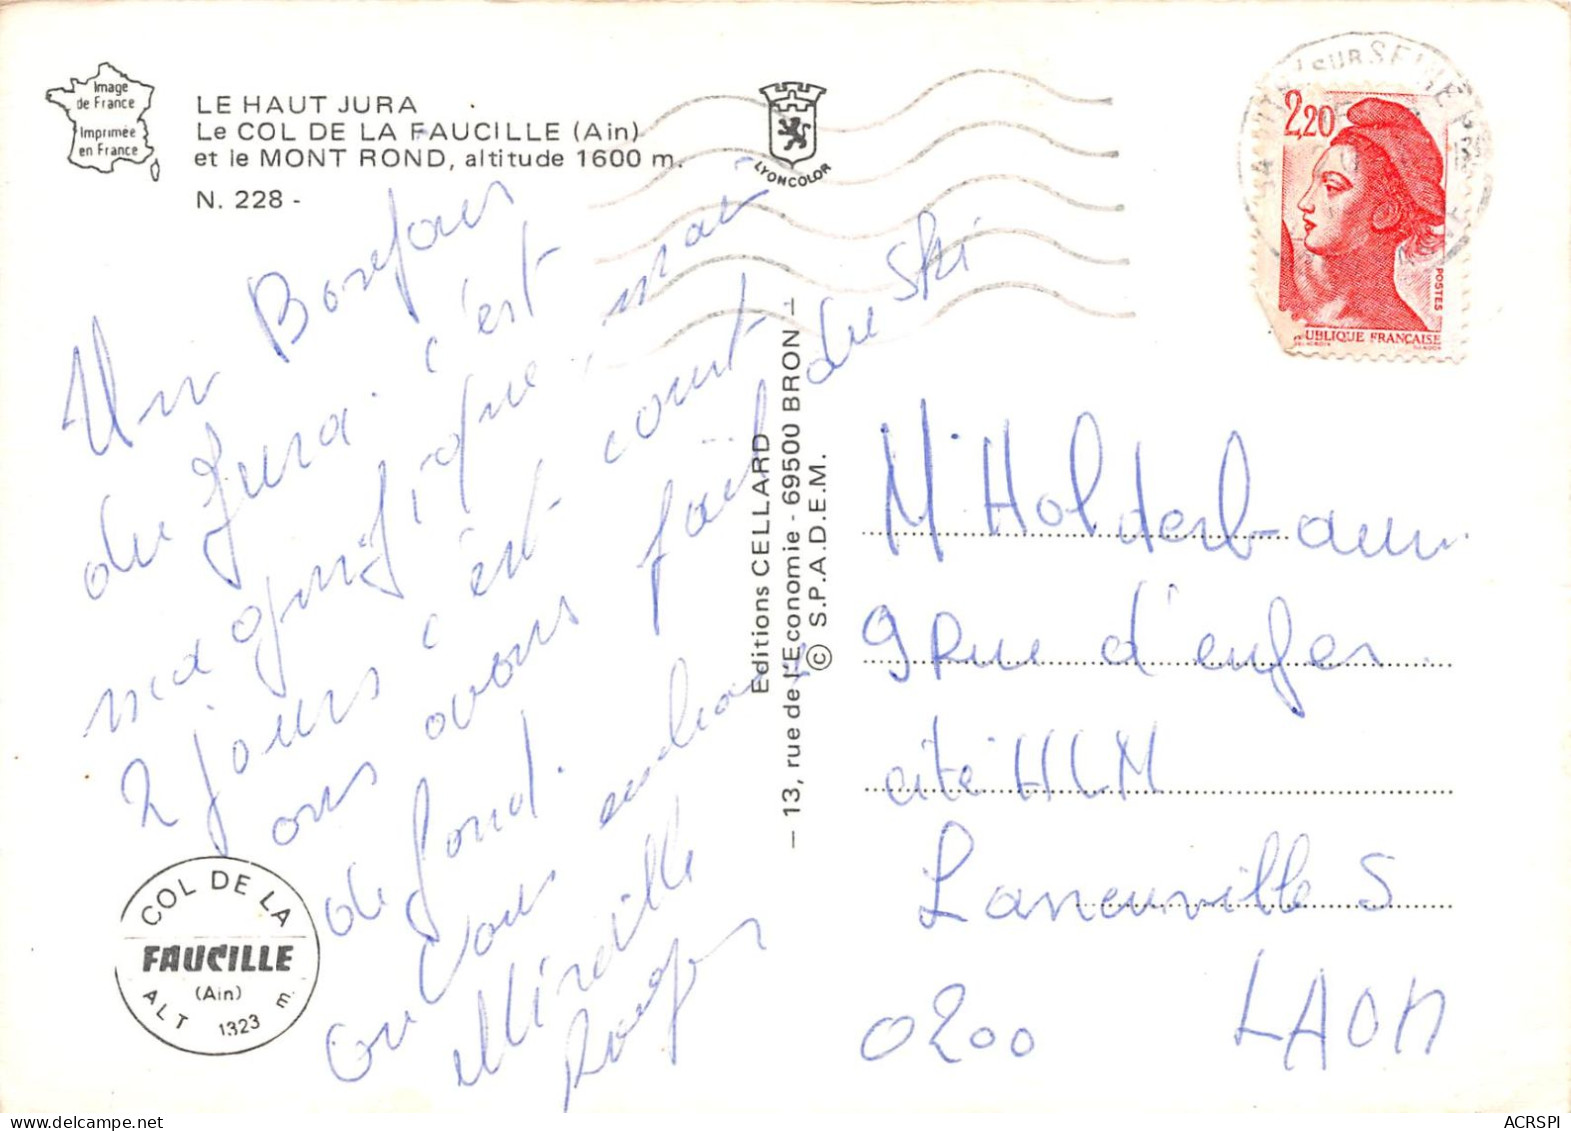 Image
de France
Imprimée
en France
LE HAUT JURA
Le COL DE LA FAUCILLE (Ain)
et le MONT ROND, altitude 1600 m.
N. 228 -
LYONCOLOR
SUR SEINE
2,20
POSTES
UBLIQUE FRANÇAISE
Un Bonjour
du Jura. c'est
magnifique, mais
2 jours c'est court
ons avons fait du ski
de fond.
on vous embrasse
Mireille
Roger
Editions CELLARD
— 13, rue de l'Economie - 69500 BRON —
© S.P.A.D.E.M.
M. Holderbaum
9 Rue d'enfer
cité HLM
Laneuville S
0200 LAON
COL DE LA
FAUCILLE
(Ain)
ALT 1323 E
ACRSPI